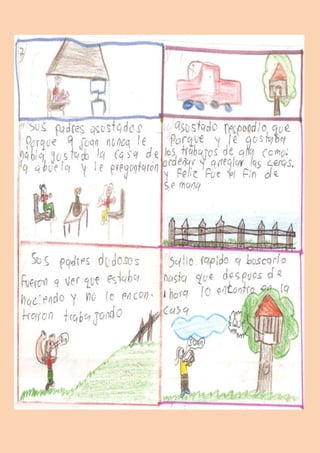 7
Sus padres asustados
Porque a Juan nunca le
había gustado la casa de
a abuela y le preguntaron
asustado respondio que
Porque y le gustaba
los trabajos de alla como:
ordenar y arreglar las
y feliz fue el fin de
semana
Sus padres dudosos
fueron a ver que estaba
haciendo y no lo encon-
traron trabajando
Salio rapido a buscarlo
hasta que despues de
1 hora lo encontro en la
casa